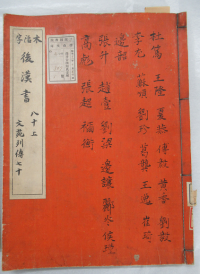 杜篤 王隆 夏恭 傅毅 黃香 劉毅
李尤 蘇順 劉珍 葛龔 王逸 崔琦
邊韶
張升 趙壹 劉梁 邊讓 酈炎 侯瑾
高彪 張超 禰衡
後漢書
八十上
文苑列傳七十